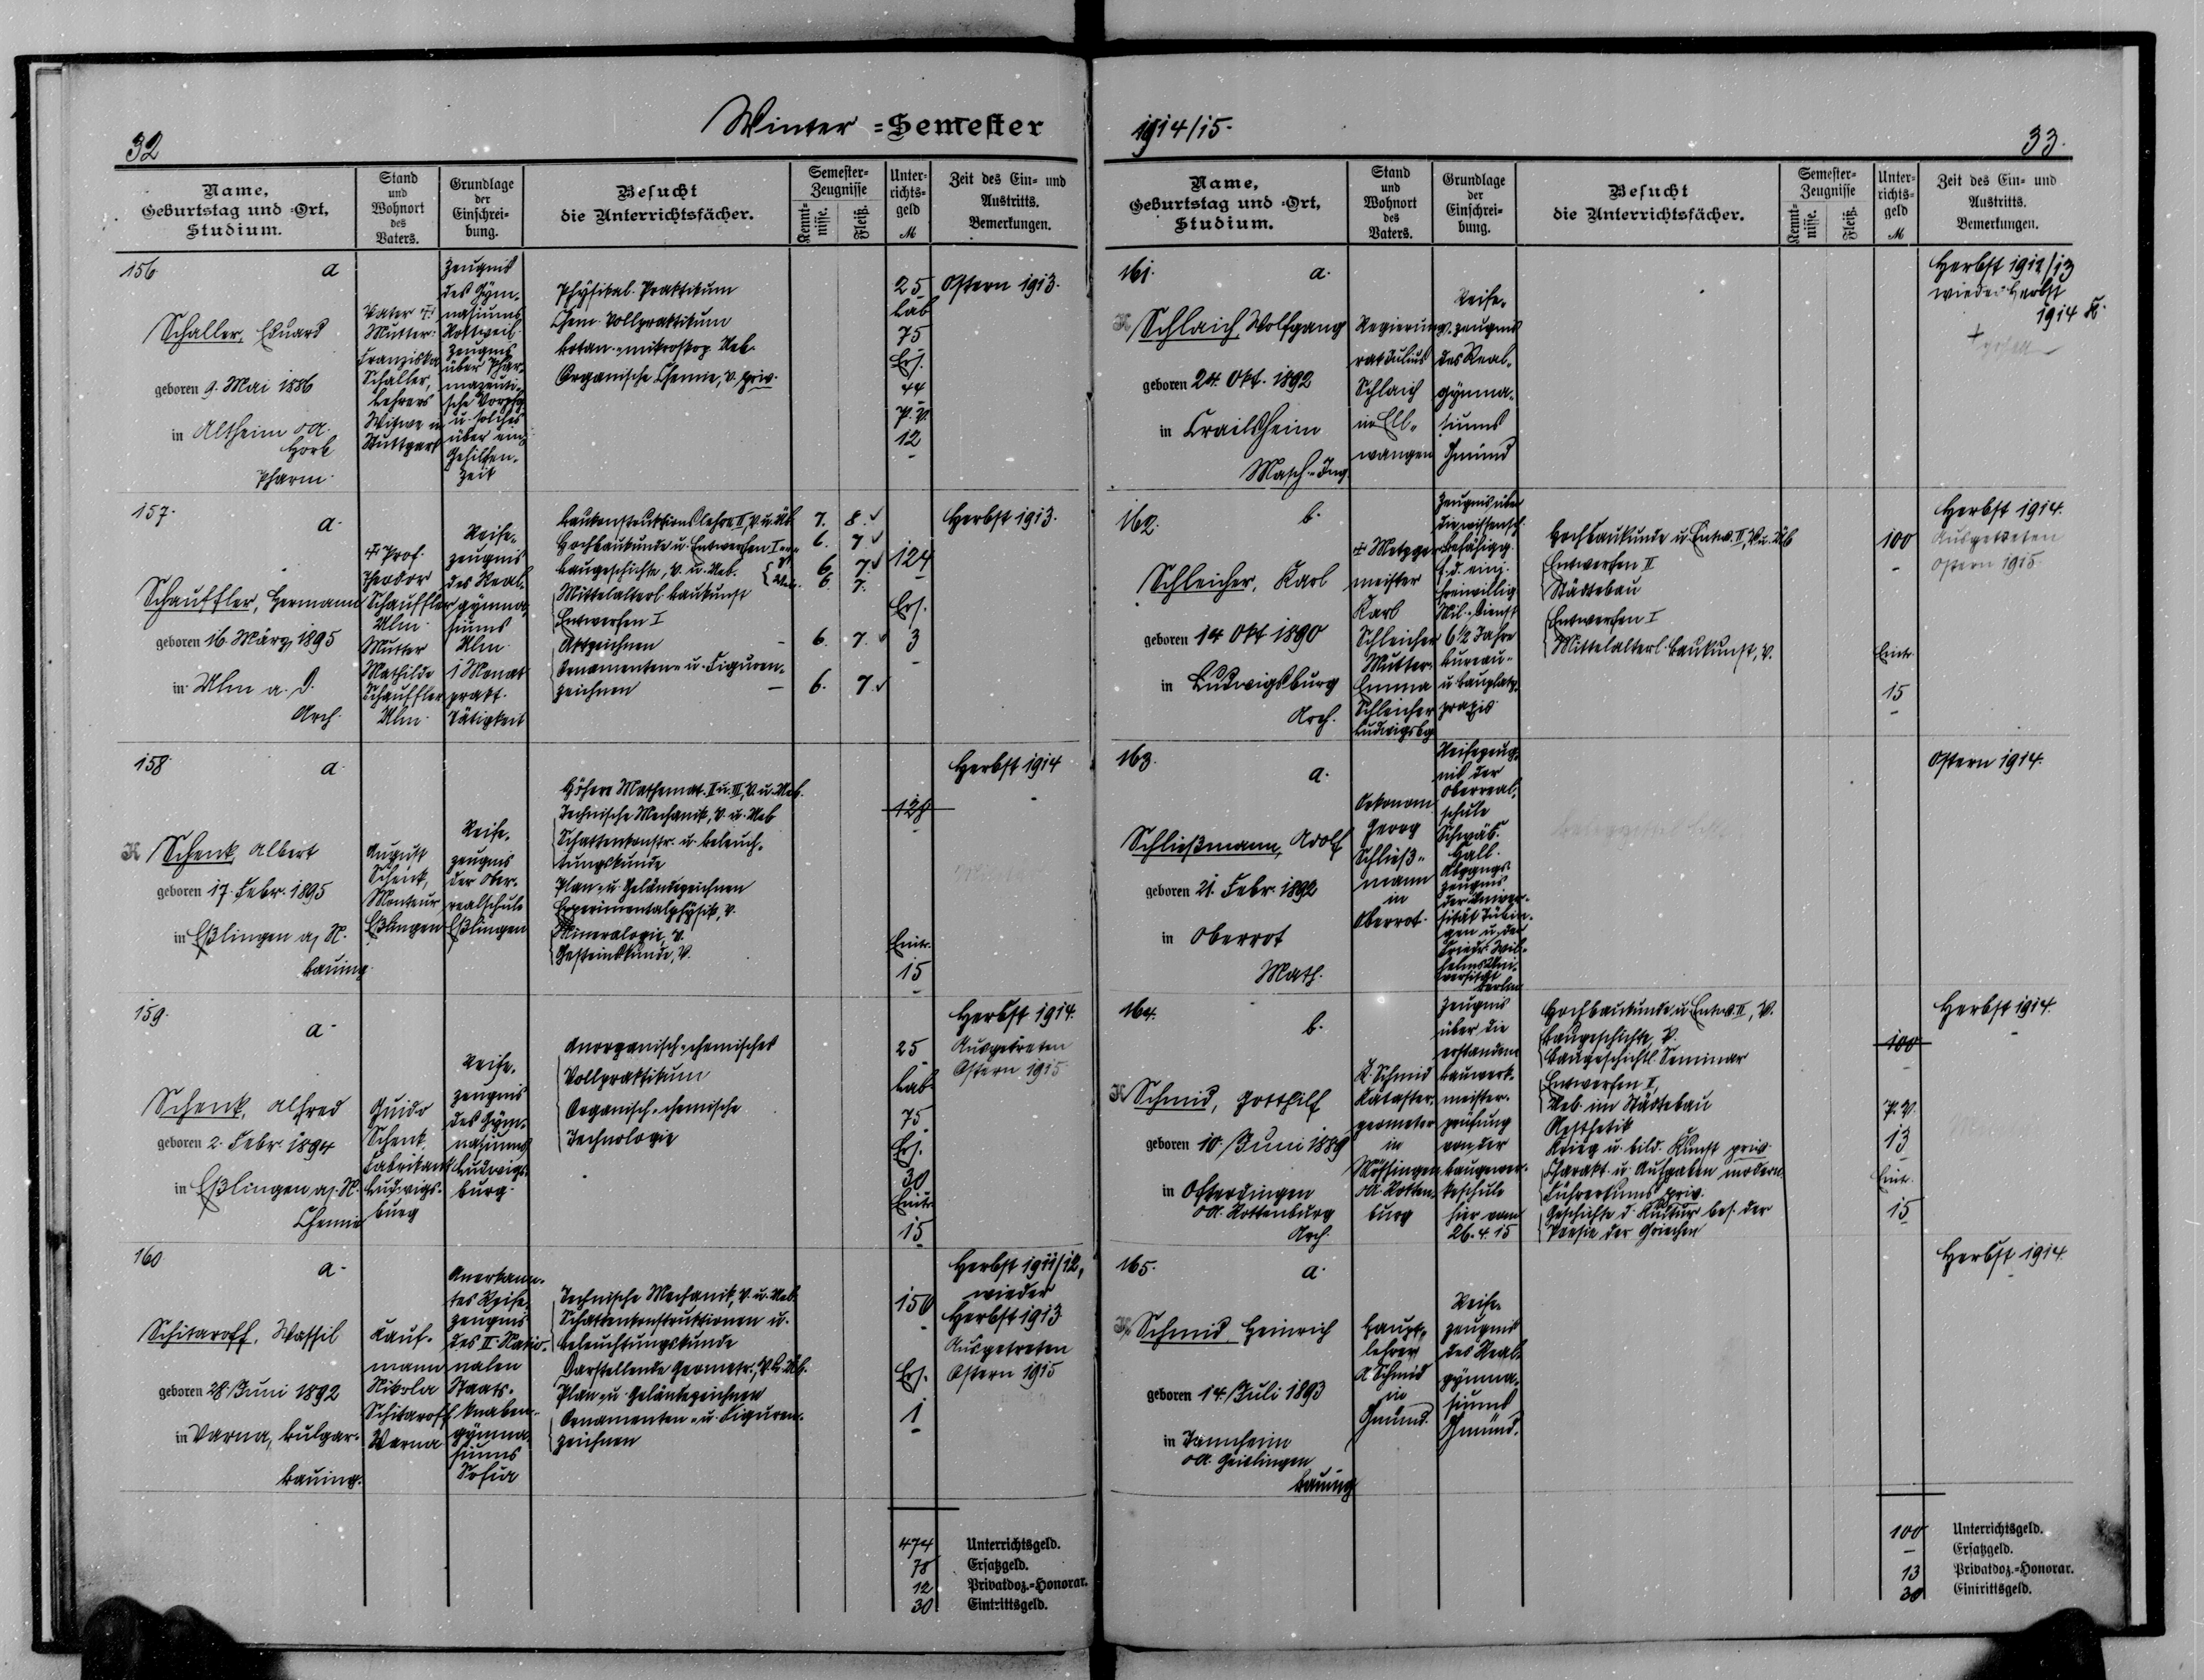 Winter =Semester
1914/15.
32
Name,
Geburtstag und =Ort,
Studium.
Stand
und
Wohnort
des
Vaters.
Grundlage
der
Einschrei=
bung.
Besucht
die Unterrichtsfächer.
Semester=
Zeugnisse
Kennt=
nisse.
Fleiß.
Unter=
richts=
geld
M
Zeit des Ein= und
Austritts.
Bemerkungen.
156
a
Schaller, Eduard
geboren 9. Mai 1886
in Altheim OA.
Horb
Pharm.
Vater †
Mutter:
Franziska
Schaller,
Lehrers
Witwe in
Stuttgart
Zeugnis
des Gym-
nasiums
Rottweil
Zeugnis
über Phar-
mazeuti-
sche Vorprfg
u. solches
über einj.
Gehilfen-
zeit
Physikal. Praktikum
Chem. Vollpraktikum
Botan.-mikroskop. Ueb.
Organische Chemie, V. priv.
25
Lab
75
Ers.
44
P.V.
12
Ostern 1913.
157.
a.
Schauffler, Hermann
geboren 16. März 1895
in Ulm a. D.
Arch.
† Prof.
Theodor
Schauffler
Ulm.
Mutter
Mathilde
Schauffler
Ulm.
Reife-
zeugnis
des Real-
gymna-
siums
Ulm
1 Monat
prakt.
Tätigkeit
Baukonstruktionslehre II, V. u. Üb. 7. 8.
Hochbaukunde u. Entwerfen I 6. 7.
Baugeschichte, V. u. Ueb. 6. 7.
Mittelalterl. Baukunst 6. 7.
Entwerfen I
Aktzeichnen – 6. 7.
Ornamenten- u. Figuren-
zeichnen – 6. 7.
124
Ers.
3
Herbst 1913.
158.
a.
Schenk, Albert
geboren 17. Febr. 1895
in Eßlingen a/N.
Bauing.
August
Schenk,
Monteur
Eßlingen
Reife-
zeugnis
der Ober-
realschule
Eßlingen
Höhere Mathemat. II u. III, V. u. Ueb.
Technische Mechanik, V. u. Ueb
Schattenkonstr. u. Beleuch-
tungskunde
Plan- u. Geländezeichnen
Experimentalphysik, V.
Mineralogie, V.
Gesteinskunde, V.
128
Eintr.
15
Herbst 1914
159.
a.
Schenk, Alfred
geboren 2. Febr. 1894
in Eßlingen a/N.
Chemie
Guido
Schenk
Fabrikant
Ludwigs-
burg
Reife-
zeugnis
des Gym-
nasiums
Ludwigs-
burg.
Anorganisch-chemisches
Vollpraktikum
Organisch-chemische
Technologie
25
Lab
75
Ers.
30
Eintr.
15
Herbst 1914.
Ausgetreten
Ostern 1915
160
a.
Schitaroff, Wassil
geboren 28. Juni 1892
in Varna, Bulgar.
Bauing.
Kauf-
mann
Nikola
Schitaroff
Warna
Anerkann-
tes Reife-
zeugnis
des II. Natio-
nalen
Staats-
knaben-
gymna-
siums
Sofia
Technische Mechanik, V. u. Ueb.
Schattenkonstruktionen u.
Beleuchtungskunde
Darstellende Geometr., V. u. Üb.
Plan- u. Geländezeichnen
Ornamenten- u. Figuren-
zeichnen
150
Ers.
1
Herbst 1911/12,
wieder
Herbst 1913
Ausgetreten
Ostern 1915
474 Unterrichtsgeld.
78 Ersatzgeld.
12 Privatdoz.=Honorar.
30 Eintrittsgeld.
33.
Name,
Geburtstag und =Ort,
Studium.
Stand
und
Wohnort
des
Vaters.
Grundlage
der
Einschrei=
bung.
Besucht
die Unterrichtsfächer.
Semester=
Zeugnisse
Kennt=
nisse.
Fleiß.
Unter=
richts=
geld
M
Zeit des Ein= und
Austritts.
Bemerkungen.
161.
a.
K Schlaich, Wolfgang
geboren 24. Okt. 1892
in Crailsheim
Masch.-Ing.
Regierungs-
rat Julius
Schlaich
in Ell-
wangen
Reife-
zeugnis
des Real-
gymna-
siums
Gmünd
Herbst 1912/13
wieder Herbst
1914
162.
b.
Schleicher, Karl
geboren 14. Okt 1890
in Ludwigsburg
Arch.
† Metzger-
meister
Karl
Schleicher
Mutter:
Emma
Schleicher
Ludwigsbg
Zeugnis über
die wissensch.
Befähigg.
f. d. einj.
freiwillig.
Mil.-Dienst
6½ Jahre
Bureau-
u. Bauplatz-
praxis
Hochbaukunde u. Entw. II, V. u. Üb
Entwerfen II
Städtebau
Entwerfen I
Mittelalterl. Baukunst, V.
100
Eintr.
15
Herbst 1914.
Ausgetreten
Ostern 1915.
163.
a.
Schließmann, Adolf
geboren 21. Febr. 1892
in Oberrot
Math.
Oekonom
Georg
Schließ-
mann
in
Oberrot.
Reifezeug-
nis der
Oberreal-
schule
Schwäb.
Hall.
Abgangs-
zeugnis
der Univer-
sität Tübin-
gen u. der
Friedr. Wil-
helms Uni-
versität
Berlin
Ostern 1914.
164.
b.
K Schmid, Gotthilf
geboren 10. Juni 1889
in Ofterdingen
OA. Rottenburg
Arch.
K. Schmid
Kataster-
geometer
in
Mössingen
OA. Rotten-
burg
Zeugnis
über die
erstandene
Bauwerk-
meister-
prüfung
von der
Baugewer-
keschule
hier vom
26. 4. 15
Hochbaukunde u. Entw. II, V.
Baugeschichte, V.
Baugeschichtl. Seminar
Entwerfen I,
Ueb. im Städtebau
Aesthetik
Krieg u. bild. Kunst priv.
Charakt. u. Aufgaben modern.
Führertums priv.
Geschichte d. Kultur bes. der
Poesie der Griechen
100
P.V.
13
Eintr.
15
Herbst 1914.
165.
a.
Schmid Heinrich
geboren 14. Juli 1893
in Tannheim
OA. Geislingen
Bauing
Haupt-
lehrer
A Schmid
in
Gmünd.
Reife-
zeugnis
des Real-
gymna-
siums
Gmünd.
Herbst 1914.
100 Unterrichtsgeld.
– Ersatzgeld.
13 Privatdoz.=Honorar.
30 Eintrittsgeld.